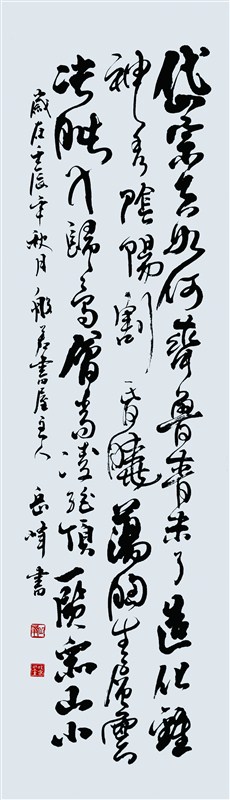 岱宗夫如何齊魯青未了造化鍾
神秀陰陽割昏曉蕩胸生層雲
決眥入歸鳥會當凌絕頂一覽眾山小
歲在壬辰年秋月般若書屋主人岳峰書